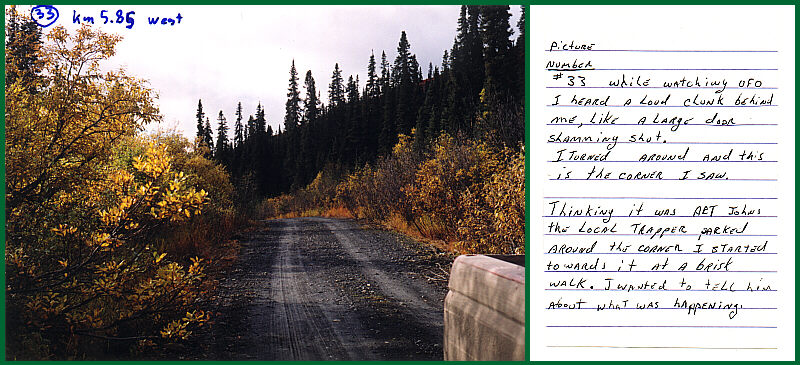 33 km 5.85 west
Picture
Number
#33 while watching UFO
I heard a loud clunk behind
me, like a large door
slamming shut.
I turned around and this
is the corner I saw.
Thinking it was ART Johns
the local trapper parked
around the corner I started
towards it at a brisk
walk. I wanted to tell him
about what was happening.